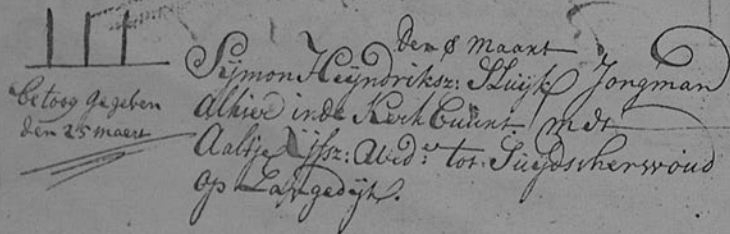 den 8 maart
Sijmon Heijndriksz: Sluijk Jongman
alhier inde Kerkbuurt met
Aaltje IJsz: Wed.e tot Suijdscherwoud
op Langedijk.
betoog gegeven
den 25 maert